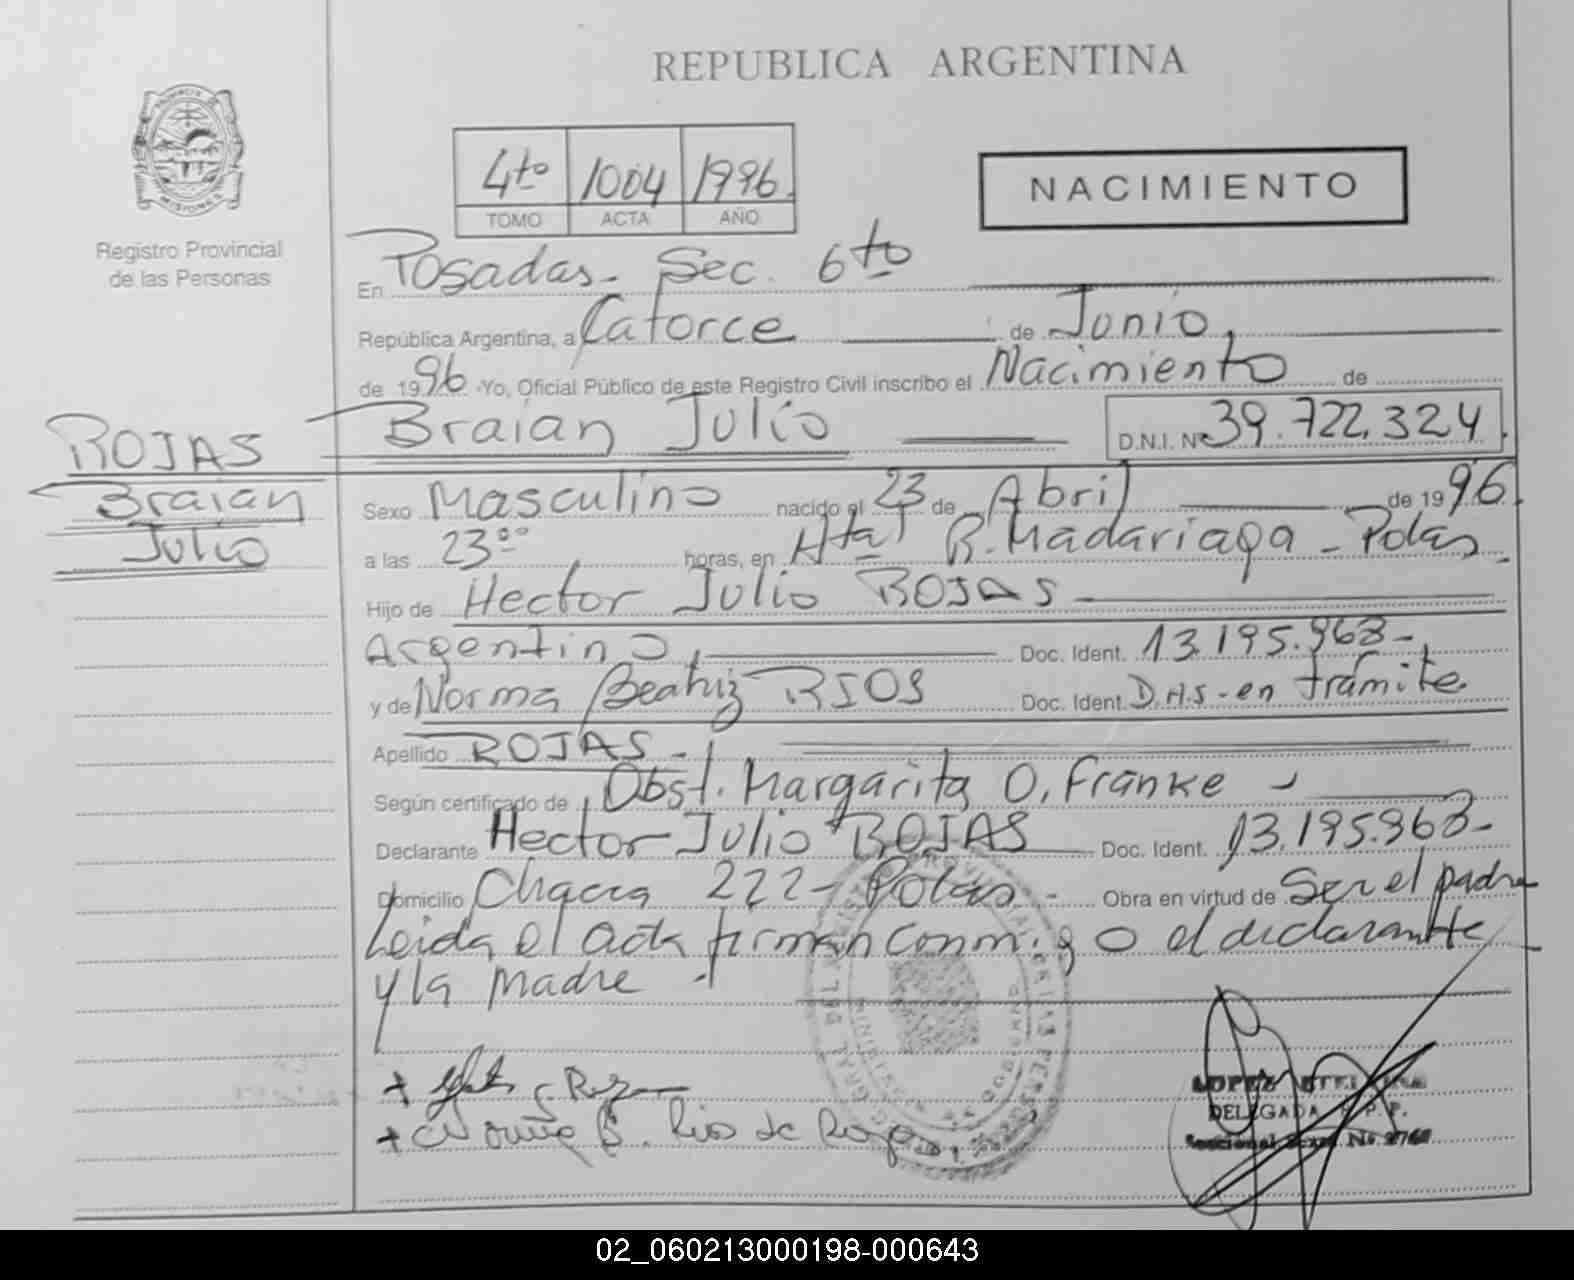 REPUBLICA ARGENTINA
4to 1004 1996
TOMO ACTA AÑO
NACIMIENTO
PROVINCIA DE
MISIONES
Registro Provincial
de las Personas
En Posadas - Sec. 6to
República Argentina, a Catorce de Junio
de 1996 . Yo, Oficial Público de este Registro Civil inscribo el Nacimiento de
Braian Julio D.N.I. Nº 39.722.324
ROJAS
Braian
Julio
Sexo Masculino nacido el 23 de Abril de 1996.
a las 23ºº horas, en Htal R. Madariaga - Pdas.
Hijo de Hector Julio ROJAS
Argentino, Doc. Ident. 13.195.963-
y de Norma Beatriz RIOS Doc. Ident. en trámite
Apellido ROJAS -
Según certificado de Obst. Margarita O. Franke
Declarante Hector Julio ROJAS Doc. Ident. 13.195.963-
Domicilio Chacra 222 - Pdas - Obra en virtud de Ser el padre
Leida el acta firman conmigo el declarante
y la madre -
+
+ Norma B. Rios de Rojas
LOPEZ
DELEGADA R.P.P.
Seccional Sexta No. 2768
02_060213000198-000643